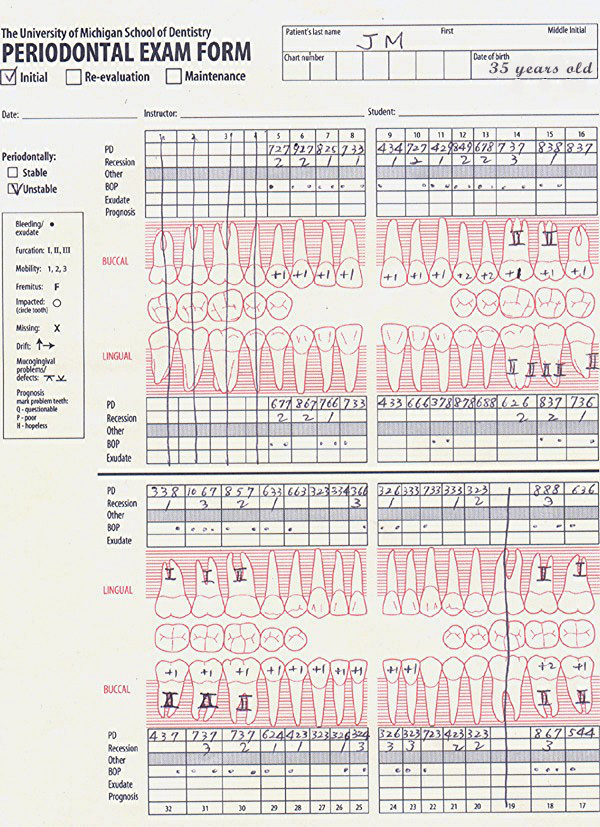 The University of Michigan School of Dentistry
PERIODONTAL EXAM FORM
Initial Re-evaluation Maintenance
Patient's last name First Middle Initial
JM
Chart number Date of birth
35 years old
Date: Instructor: Student:
Periodontally:
Stable
Unstable
Bleeding/ exudate
Furcation: I, II, III
Mobility: 1, 2, 3
Fremitus: F
Impacted: (circle tooth)
Missing: X
Drift:
Mucogingival problems/ defects:
Prognosis
mark problem teeth:
Q - questionable
P - poor
H - hopeless
1 2 3 4 5 6 7 8 9 10 11 12 13 14 15 16
PD 727 927 825 733 434 727 429 849 678 737 838 837
Recession 2 2 1 1 1 2 1 2 2 3 1
Other
BOP
Exudate
Prognosis
II II
BUCCAL
+1 +1 +1 +1 +1 +1 +1 +2 +2 +1 +1 +1
LINGUAL
PD 677 867 766 733 433 666 378 878 688 626 837 736
Recession 2 2 1 2 2 1
Other
BOP
Exudate
PD 338 1067 857 633 663 323 334 366 326 333 733 333 323 888 636
Recession 1 3 2 1 3 1 1 2 3
Other
BOP
Exudate
I I II II I
LINGUAL
+1 +1 +1 +1 +1 +1 +1 +1 +1 +1 +2 +1
BUCCAL
II II II II II
PD 437 737 737 624 423 323 326 324 326 323 723 423 323 867 544
Recession 3 2 1 1 1 3 3 3 2 2 3
Other
BOP
Exudate
Prognosis
32 31 30 29 28 27 26 25 24 23 22 21 20 19 18 17